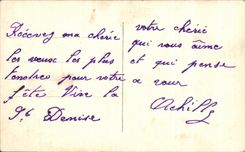 Recevez ma chérie
les vœux les plus
tendres pour votre
fête Vive la
Ste Denise
votre chérie
qui vous aime
et qui pense
a vous
Achille